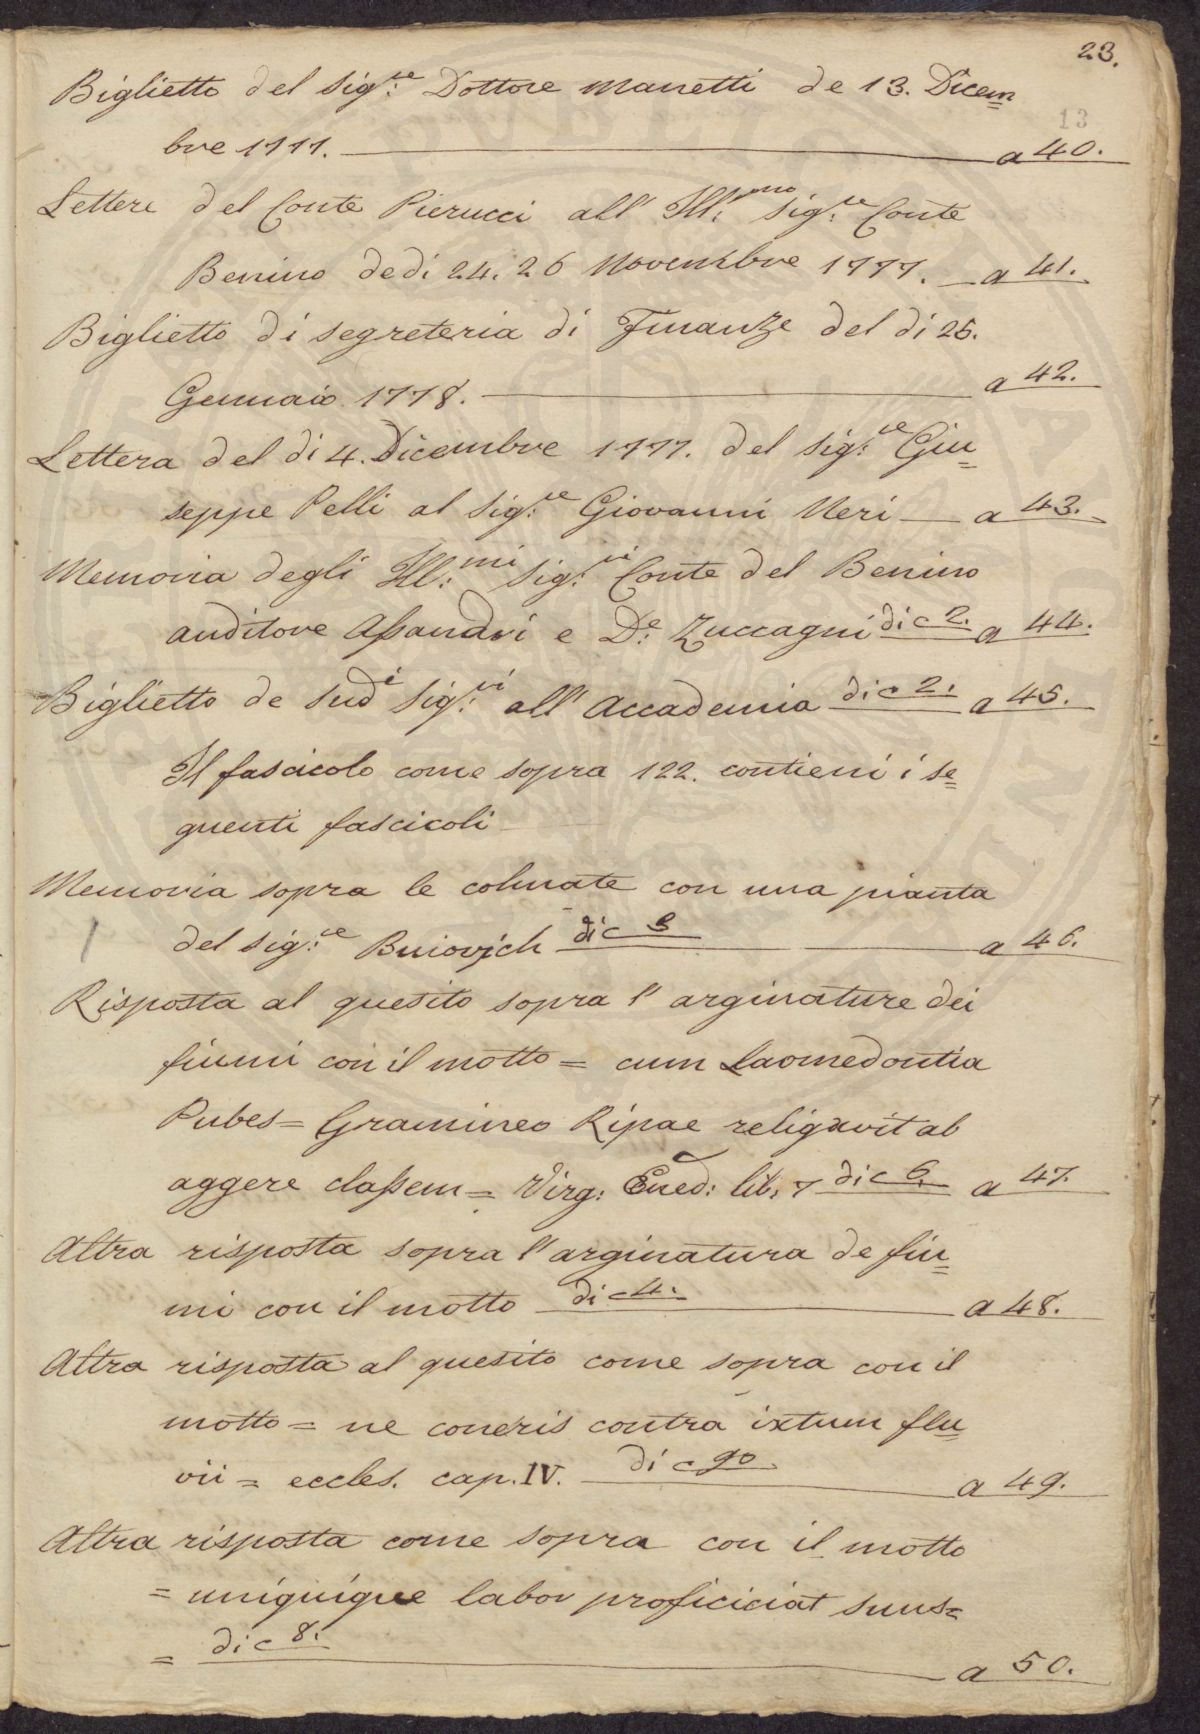 23.
13
Biglietto del Sig.re Dottore Manetti de 13. Dicem=
bre 1777. a 40.
Lettere del Conte Pierucci all' Ill:mo Sig.re Conte
Benino dedi 24. 26 Novembre 1777. a 41.
Biglietto di segreteria di Finanze del di 25.
Gennaio 1778. a 42.
Lettera del di 4. Dicembre 1777. del Sig.re Giu=
seppe Pelli al Sig.re Giovanni Neri a 43.
Memoria degli Ill:mi Sig:ri Conte del Benino
auditore Aſsandri e D:e Zuccagni di c 2. a 44.
Biglietto de sudi Sig:ri all' Accademia di c 2. a 45.
Il fascicolo come sopra 122. contieni i se=
guenti fascicoli
Memoria sopra le colmate con una pianta
del Sig:re Buiovich di c 3 a 46.
Risposta al quesito sopra l' arginature dei
fiumi con il motto = cum Laomedontia
Pubes = Gramineo Ripae religavit ab
aggere claſsem = Virg: Ened: lib: 7 di c 6. a 47.
Altra risposta sopra l' arginatura de fiu=
mi con il motto di c 4. a 48.
Altra risposta al quesito come sopra con il
motto = ne coneris contra ixtum flu=
vii = eccles. cap. IV. di c 90. a 49.
Altra risposta come sopra con il motto
= uniquique labor proficiciat suus =
= di c 8. a 50.